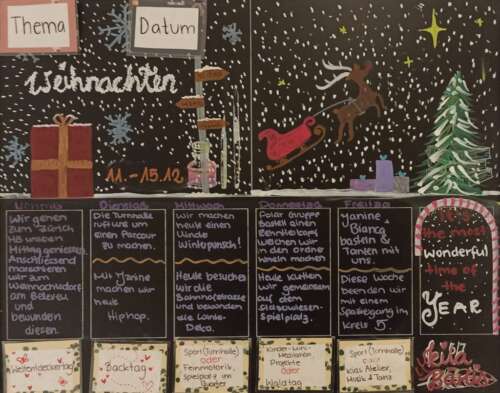 Thema
Datum
Weihnachten
11. - 15.12
Dienstag
Mittwoch
Donnerstag
Freitag
Wir gehen
zum Zürich
HB unseren
Mittag geniessen
Anschliessend
marschieren
wir zum
Weihnachtsdorf
am Bellevue
und
bewundern
diesen.
Die Turnhalle
ruft uns um
einen Parcour
zu machen.
Mit Yanine
machen wir
heute
Hip hop.
Wir machen
heute einen
Winterpunsch!
Heute besuchen
wir die
Bahnhofstrasse
und bewundern
die
Deko.
Gruppe
bastelt einen
welchen wir
in den Ordner
machen
Heute
wir gemeinsam
auf dem
Spielplatz.
Yanine &
Bianca
basteln &
Tanzen mit
uns.
Diese Woche
beenden wir
mit einem
Spaziergang im
Kreis 5
It's
the most
wonderful
time of the
YEAR
Weltentdeckertag
Backtag
Sport (Turnhalle)
Oder
Feinmotorik,
Spielplatz im
Quartier
Kinder-Yoga
Meditation
Projekte
Oder
Waldtag
Sport (Turnhalle)
Kids Atelier,
Musik & Tanz